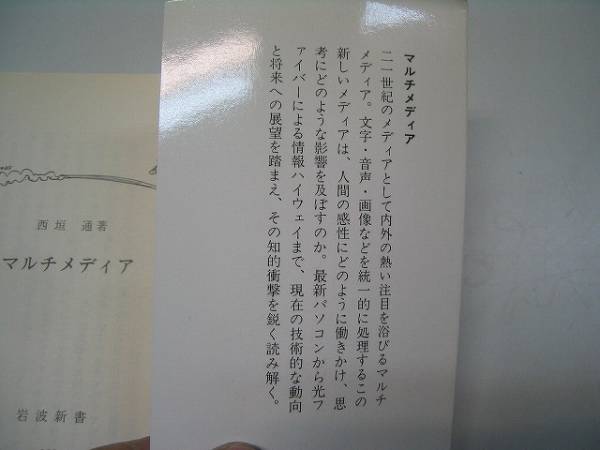 マルチメディア
二一世紀のメディアとして内外の熱い注目を浴びるマルチ
メディア。文字・音声・画像などを統一的に処理するこの
新しいメディアは、人間の感性にどのように働きかけ、思
考にどのような影響を及ぼすのか。最新パソコンから光フ
ァイバーによる情報ハイウェイまで、現在の技術的な動向
と将来への展望を踏まえ、その知的衝撃を鋭く読み解く。
西垣 通著
マルチメディア
岩波新書